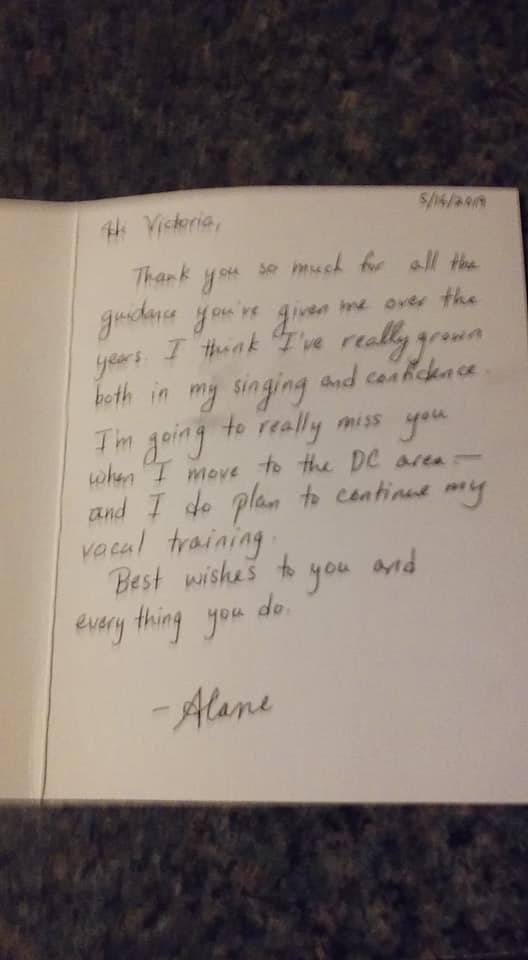 5/16/2019
Hi Victoria,
Thank you so much for all the
guidance you've given me over the
years. I think I've really grown
both in my singing and confidence.
I'm going to really miss you
when I move to the DC area —
and I do plan to continue my
vocal training.
Best wishes to you and
every thing you do.
- Alane